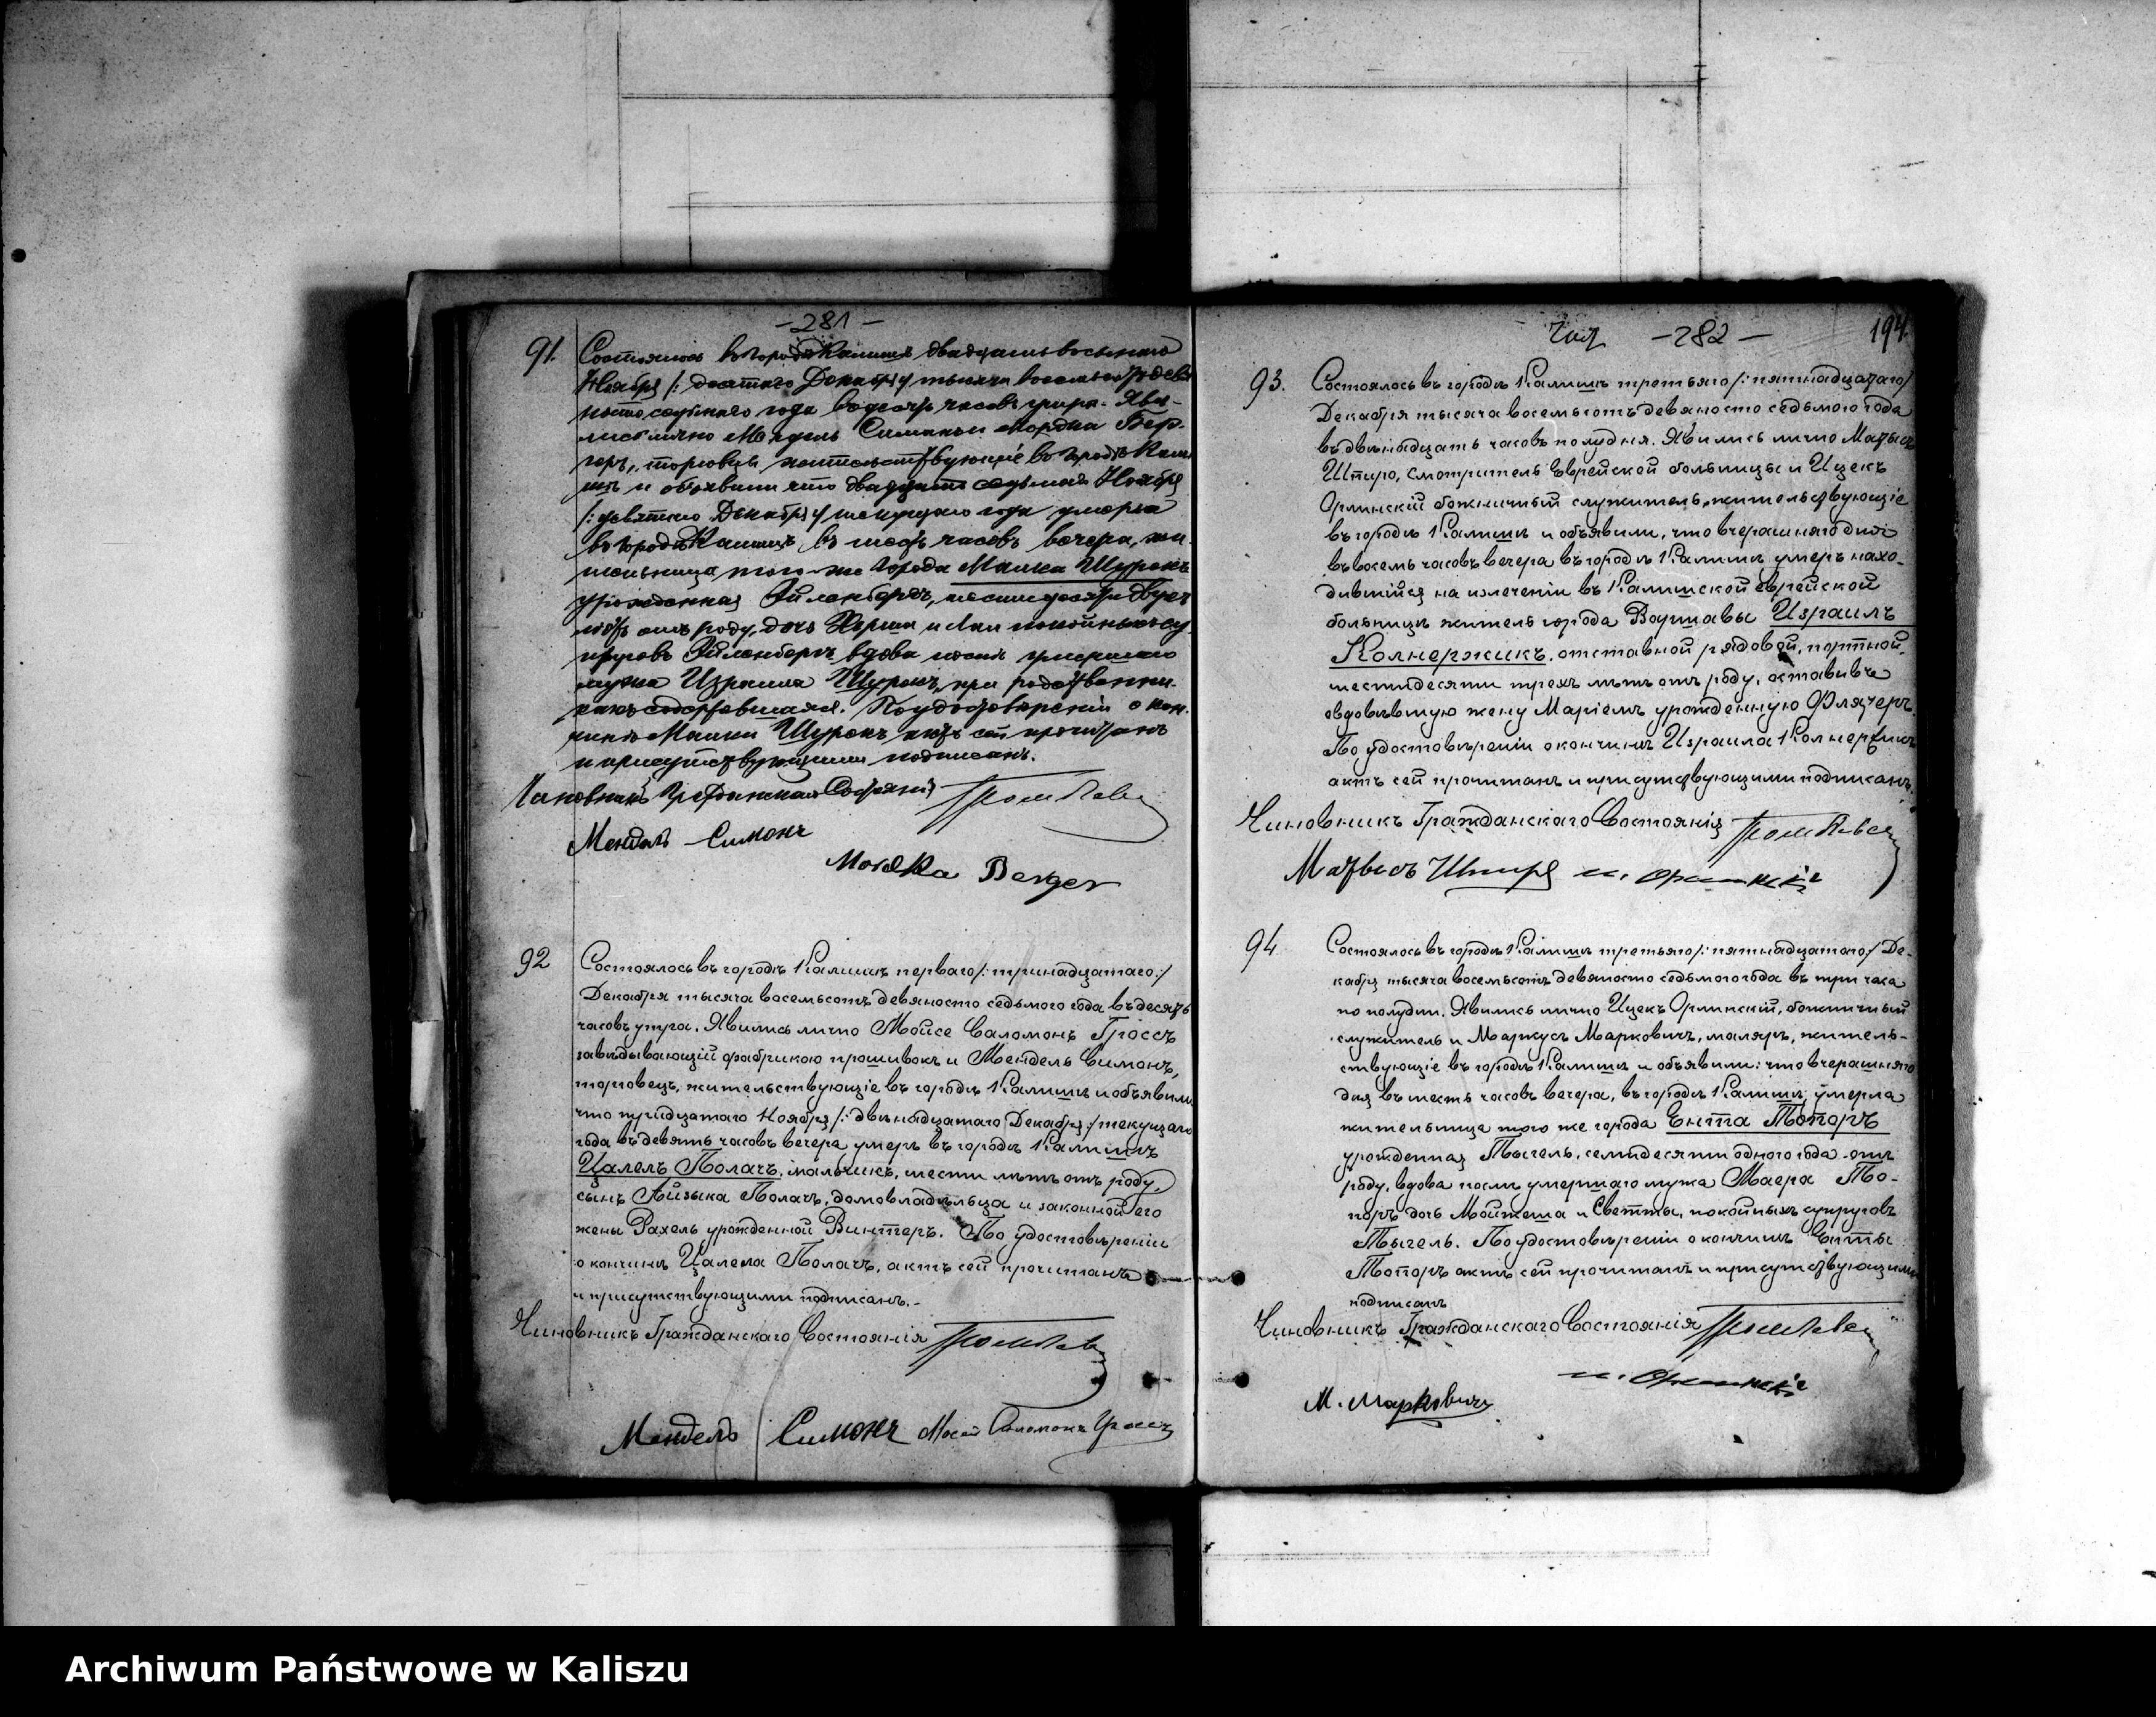 -281-
91. Состоялось въ городѣ Калишѣ двадцать восьмого
Ноября /: десятаго Декабря :/ тысяча восемьсотъ девя
носто седьмого года въ десять часовъ утра. Яви-
лись лично Мендель Симонъ и Мордка Бер-
геръ, торговцы, жительствующіе въ городѣ Кали
шѣ и объявили что двадцать седьмого Ноября
/: девятаго Декабря :/ текущаго года умерла
въ городѣ Калишѣ въ шесть часовъ вечера, жи-
тельница того-же города Малка Щурокъ
урожденная Эйленбергъ, шестидесяти двухъ
лѣтъ отъ роду, дочь Херша и Лаи покойныхъ су-
пруговъ Эйленбергъ, вдова послѣ умершаго
мужа Израиля Щурокъ, при родственни-
кахъ По удостовѣреніи о кон-
чинѣ Малки Щурокъ актъ сей прочитанъ
и присутствующими подписанъ.
Чиновникъ Гражданскаго Состоянія
Мендель Симонъ
Mordka Berger
92 Состоялось въ городѣ Калишѣ перваго /: тринадцатаго :/
Декабря тысяча восемьсотъ девяносто седьмого года въ десять
часовъ утра. Явились лично Мойсе Саломонъ Гроссъ
завѣдывающій фабрикою прошивокъ и Мендель Симонъ,
торговецъ, жительствующіе въ городѣ Калишѣ и объявили
что тридцатаго Ноября /: двѣнадцатаго Декабря :/ текущаго
года въ девять часовъ вечера, умеръ въ городѣ Калишѣ
Цалель Полачъ, мальчикъ, шести лѣтъ отъ роду,
сынъ Айзыка Полачъ, домовладѣльца и законной его
жены Рахель урожденной Винтеръ. По удостовѣреніи
о кончинѣ Цалела Полачъ, актъ сей прочитанъ
и присутствующими подписанъ.-
Чиновникъ Гражданскаго Состоянія
Мендель Симонъ Мосей Саломонъ Гроссъ
-282- 194.
93. Состоялось въ городѣ Калишѣ третьяго /: пятнадцатаго :/
Декабря тысяча восемьсотъ девяносто седьмого года
въ двѣнадцать часовъ полудня. Явились лично Матысъ
Шпиро, смотритель Еврейской больницы и Ицекъ
Орлинскій божничный служитель, жительствующіе
въ городѣ Калишѣ и объявили, что вчерашняго дня
въ восемь часовъ вечера въ городѣ Калишѣ умеръ нахо-
дившійся на излеченіи въ Калишской еврейской
больницѣ житель города Варшавы Израиль
Колнержикъ, отставной рядовой, портной,
шестидесяти трехъ лѣтъ отъ роду, оставивъ
овдовѣвшую жену Маріемъ урожденную Флячеръ.
По удостовѣреніи о кончинѣ Израиля Колнержикъ
актъ сей прочитанъ и присутствующими подписанъ.
Чиновникъ Гражданскаго Состоянія
Матысъ Шпиро И. Орлинскій
94 Состоялось въ городѣ Калишѣ третьяго /: пятнадцатаго :/ Де-
кабря тысяча восемьсотъ девяносто седьмого года въ три часа
по полудни. Явились лично Ицекъ Орлинскій, божничный
служитель и Маркусъ Марковичъ, маляръ, житель-
ствующіе въ городѣ Калишѣ и объявили: что вчерашняго
дня въ шесть часовъ вечера, въ городѣ Калишѣ, умерла
жительница того же города Ента Топоръ
урожденная Тыгель, семидесяти одного года отъ
роду, вдова послѣ умершаго мужа Маера То-
поръ дочь Мойжеша и Светты, покойныхъ супруговъ
Тыгель. По удостовѣреніи о кончинѣ Енты
Топоръ актъ сей прочитанъ и присутствующими
подписанъ
Чиновникъ Гражданскаго Состоянія
И. Орлинскій
М. Марковичъ
Archiwum Państwowe w Kaliszu